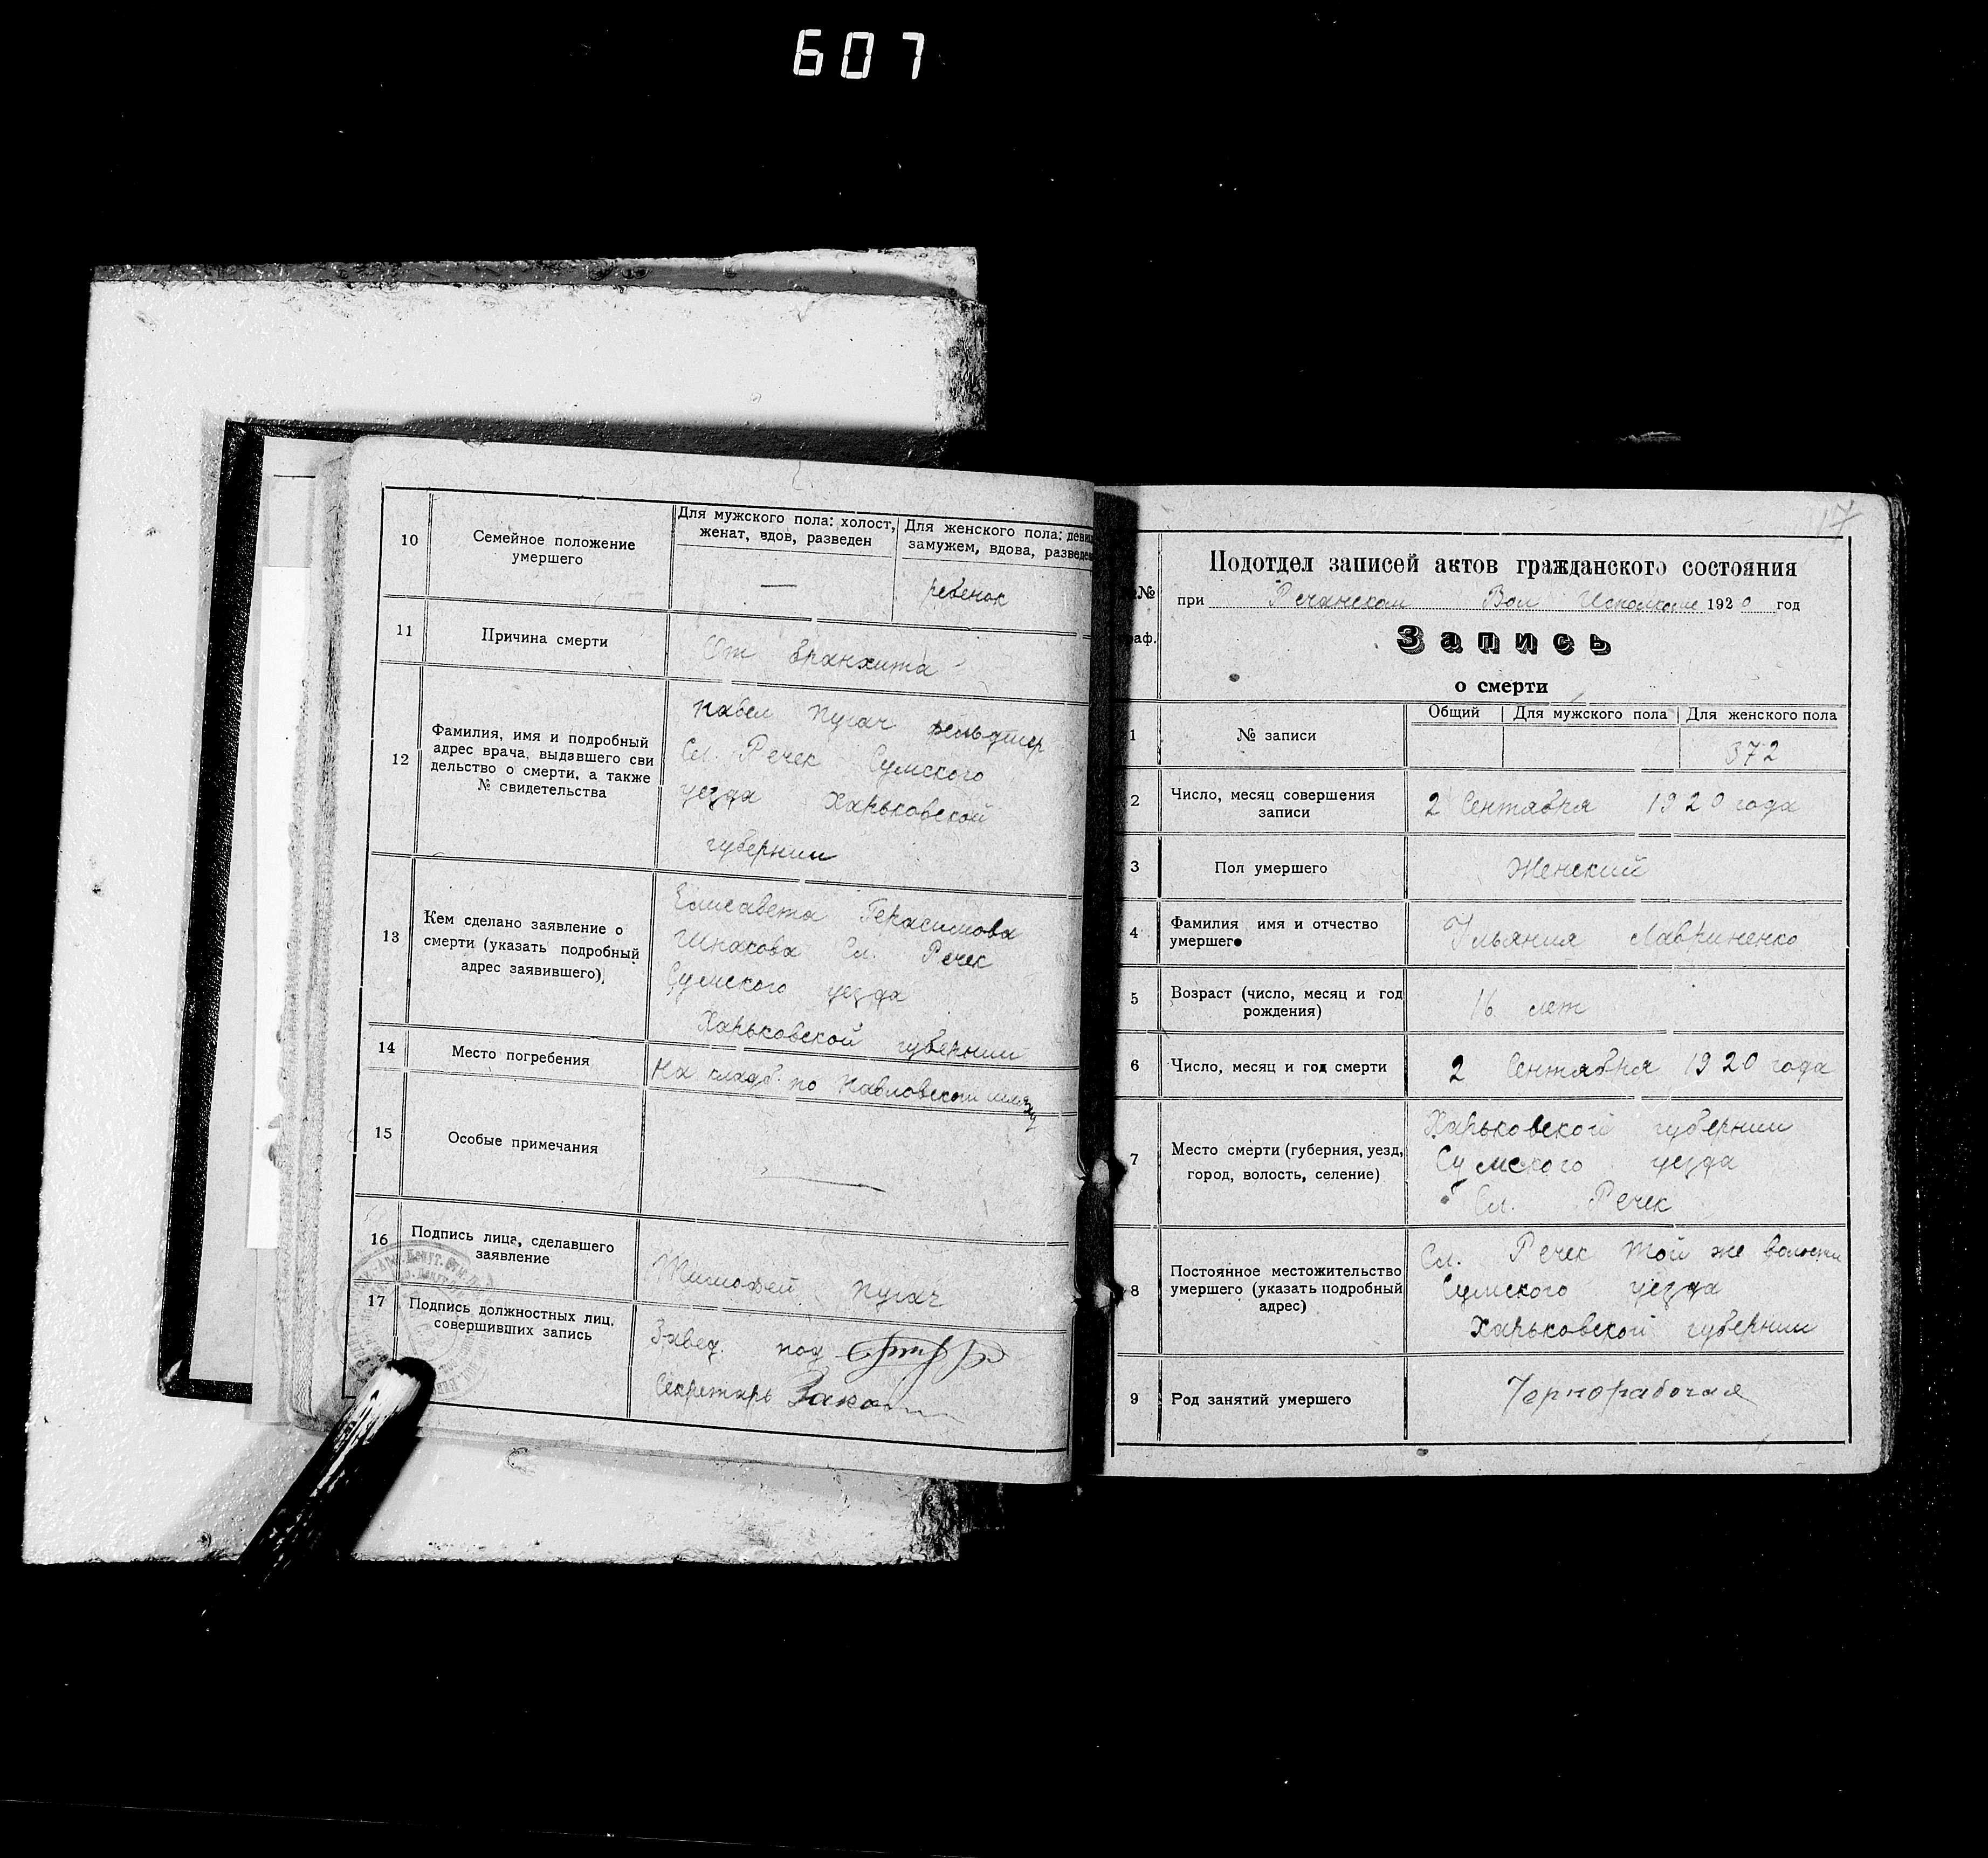 607
10
Семейное положение
умершего
Для мужского пола: холост,
женат, вдов, разведен
Для женского пола: девиц
замужем, вдова, разведен
—
ребенок
11
Причина смерти
От вранхита
12
Фамилия, имя и подробный
адрес врача, выдавшего сви
дельство о смерти, а также
№ свидетельства
Павел Пугач
Сл. Речек Сумского
уезда Харьковской
губернии
13
Кем сделано заявление о
смерти (указать подробный
адрес заявившего)
Елисавета Герасимова
Шпакова Сл. Речек
Сумского уезда
Харьковской губернии
14
Место погребения
На кладб. по Павловском шляху
15
Особые примечания
—
16
Подпись лица, сделавшего
заявление
Тимофей Пугач
17
Подпись должностных лиц,
совершивших запись
Завед. под
Секретарь
17
№№
раф.
Подотдел записей актов гражданского состояния
при Речанском Вол Исполкоме 1920 год
Запись
о смерти
1
№ записи
Общий
Для мужского пола
Для женского пола
372
2
Число, месяц совершения
записи
2 Сентявря 1920 года
3
Пол умершего
Женский
4
Фамилия имя и отчество
умершего
Ульяния Лавриненко
5
Возраст (число, месяц и год
рождения)
16 лет
6
Число, месяц и год смерти
2 Сентявря 1920 года
7
Место смерти (губерния, уезд,
город, волость, селение)
Харьковской губернии
Сумского уезда
Сл. Речек
8
Постоянное местожительство
умершего (указать подробный
адрес)
Сл. Речек той же волости
Сумского уезда
Харьковской губернии
9
Род занятий умершего
Чернорабочая